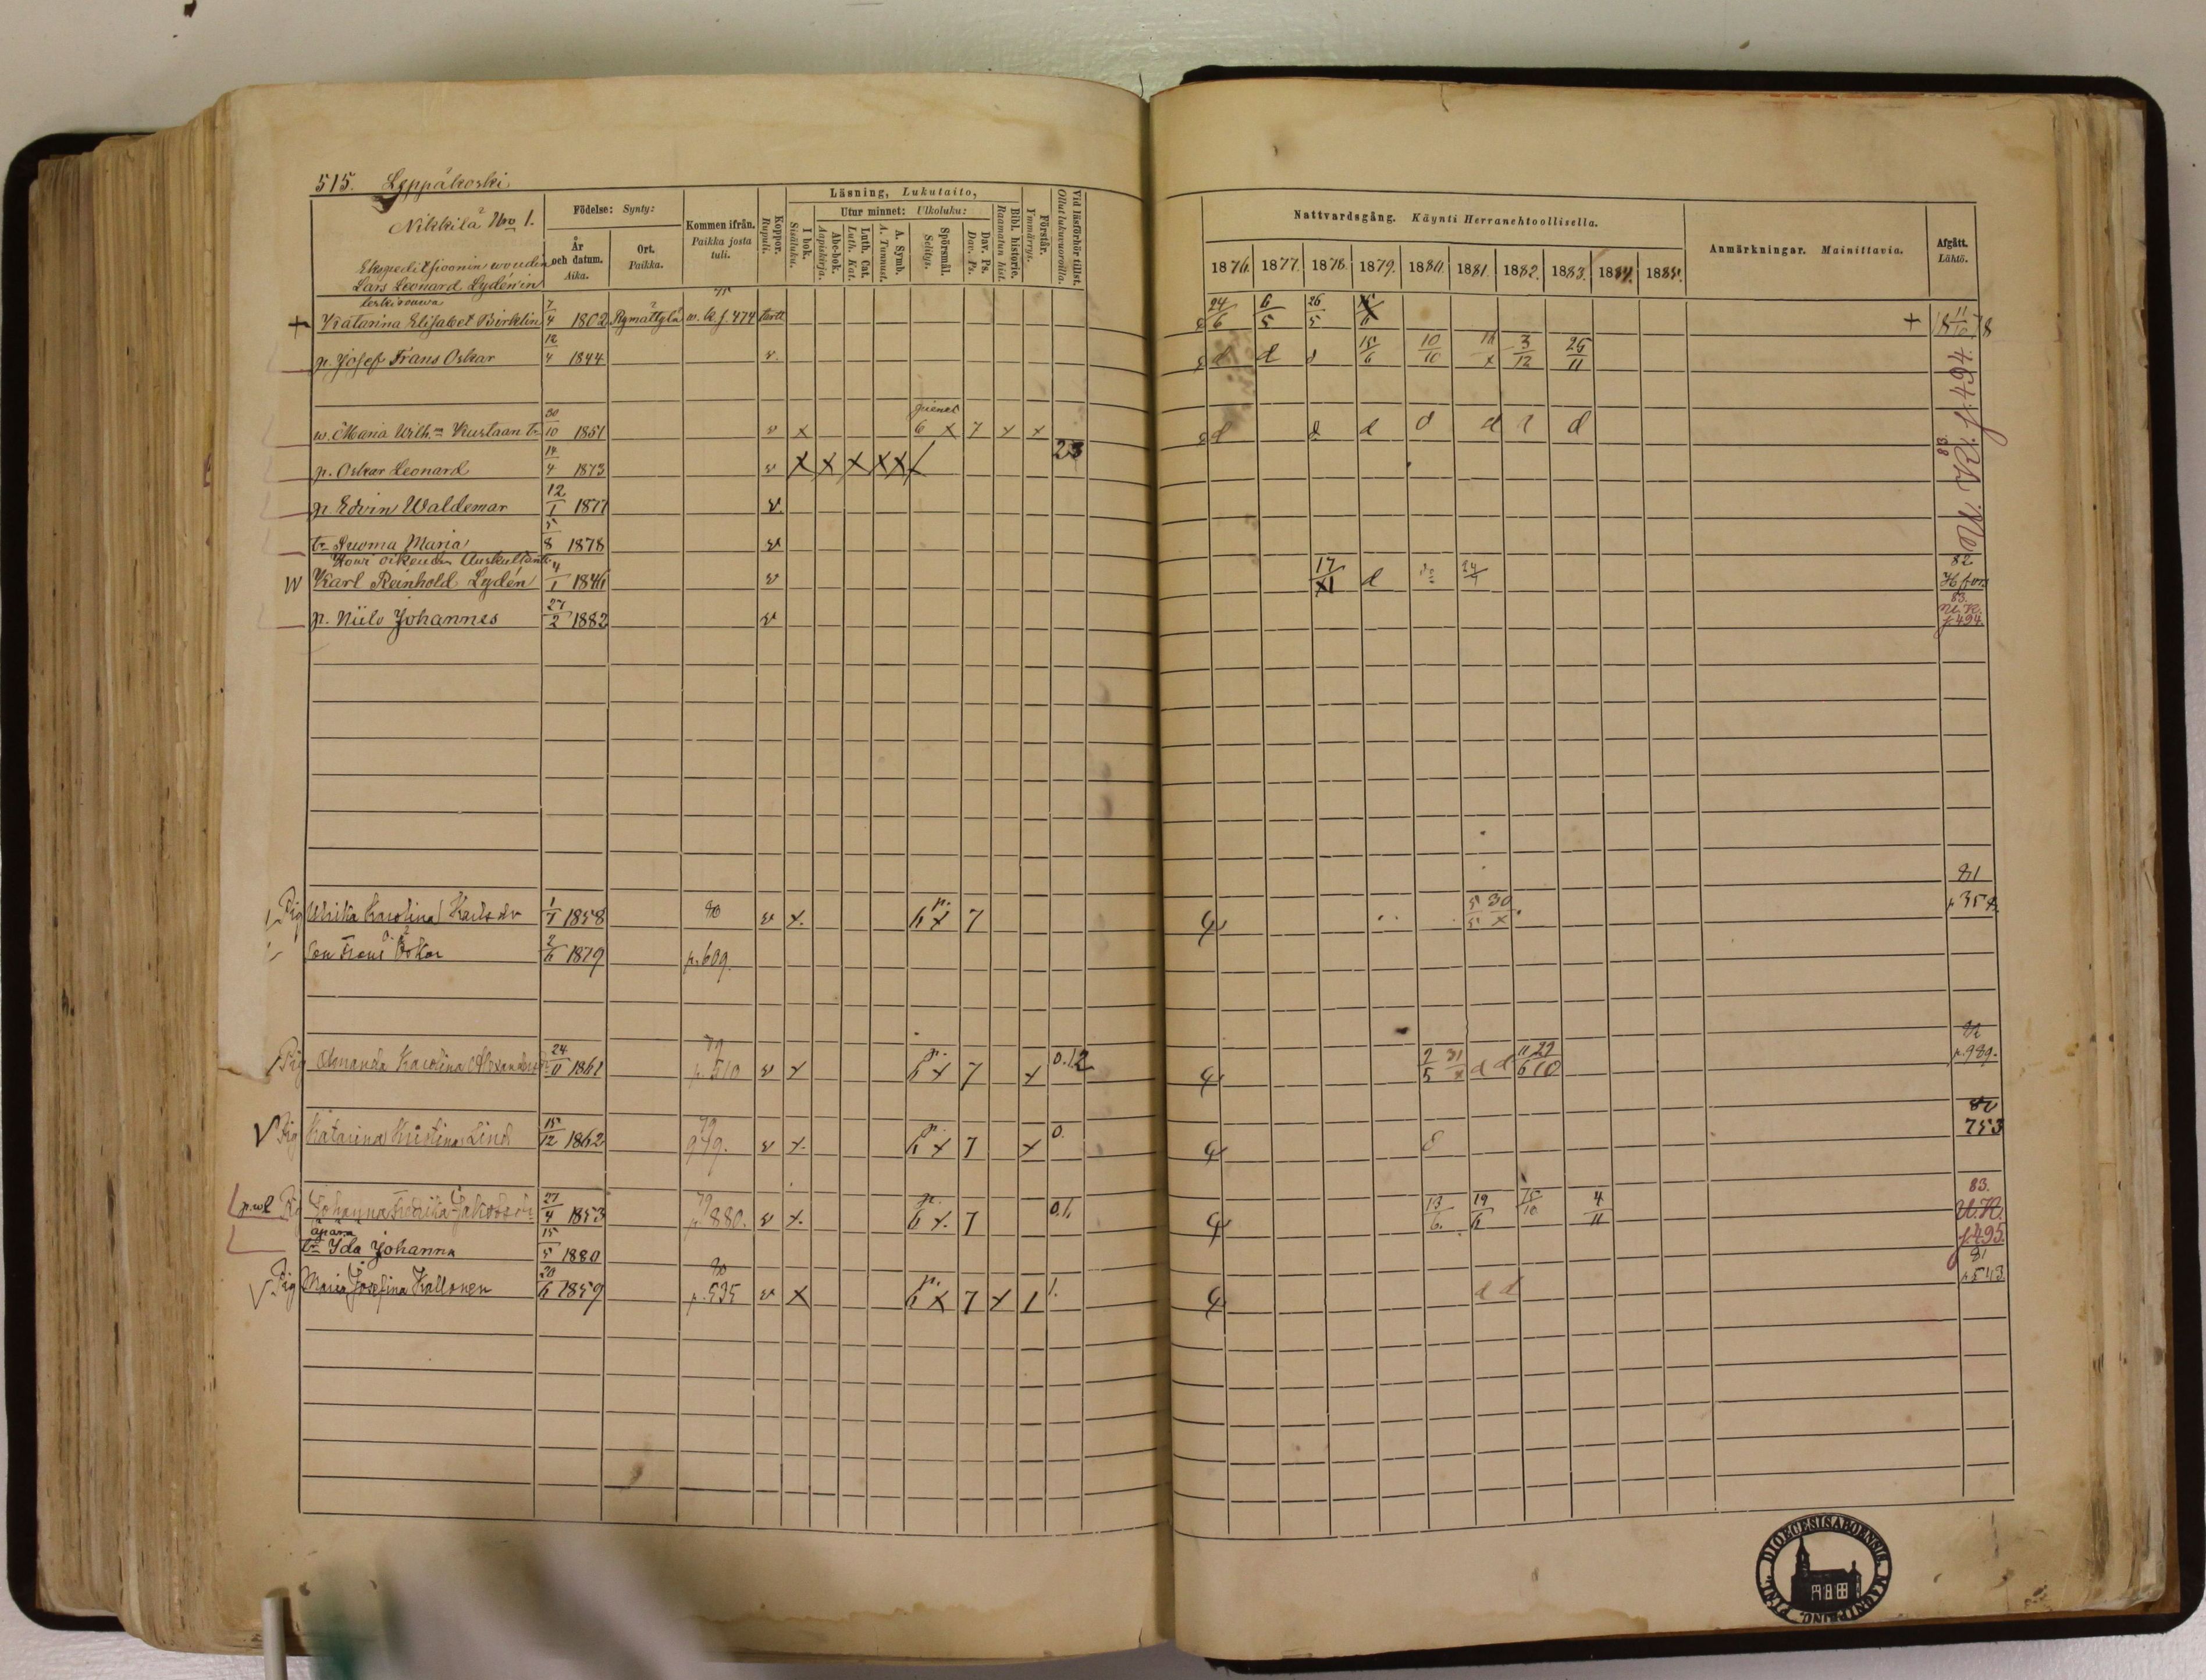 515. Leppäkoski
Nikkilä Nro 1.
Födelse: Synty:
År och datum. Aika.
Ort. Paikka.
Kommen ifrån. Paikka josta tuli.
Koppor. Rupuli.
Läsning, Lukutaito,
I bok. Sisäluku.
Utur minnet: Ulkoluku:
Abc-bok. Aapiskirja.
Luth. Cat. Luth. Kat.
A. Symb. A. Tunnust.
Spörsmål. Selitys.
Dav. Ps. Dav. Ps.
Bibl. historie. Raamatun hist.
Förstår. Ymmärrys.
Vid läsförhör tillst. Ollut lukuvuoroilla.
Nattvardsgång. Käynti Herranehtoollisella.
1876. 1877. 1878. 1879. 1880. 1881. 1882. 1883. 1884. 1885.
Anmärkningar. Mainittavia.
Afgått. Lähtö.
Ekspeditsioonin woudin
Lars Leonard Lydén'in
leskirouwa
+ Katarina Elisabet Birklin 7/4 1802 Rymättylä w. k. f. 474 24/6 6/5 26/5 +
p. Josef Frans Oskar 12/4 1844 v. d d d 15/6 10/10 3/12 25/11
w. Maria Wilh:na Kustaan tr. 30/10 1851 v x pienet 6 x 7 x x d d d d d d d
p. Oskar Leonard 14/4 1873 v x x x x x 23
p. Edvin Waldemar 12/1 1877 v.
tr. Suoma Maria 5/8 1878 v
83. U. K. f. 494.
Howi oikeuden Auskultantti
Karl Reinhold Lydén 4/1 1846 v 17/XI d 82 H:fors
p. Niilo Johannes 27/2 1882 v 83. U. K. f. 494.
Pig Ulrika Karolina Karlsdr 1/1 1858 80 v x. 6 x 7 5/5 30/x 81
Son Frans Oskar 2/6 1879 p. 609.
Pig Amanda Karolina 24/11 1861 79 p. 510 v x 6 x 7 x 0.12 2/5 31/x d d 11/6 29/10 82 p. 989.
Pig Katarina Kristina Lind 15/12 1862 79 979. v x. 6 x 7 x 0. 82 753
Johanna Fredrika 27/4 1853 79 p. 880. v x. 6 x. 7 0.1. 13/6. 19/6 15/10 4/11 83. U. K. f. 495.
äpärä
tr. Ida Johanna 15/5 1880
Pig Maria Josefina Kallonen 20/6 1859 80 p. 535 v x p. 6 x 7 x 1 1. d d 81 p. 543
DIOECESIS ABOENSIS. MAGNI PRINC. FINL.